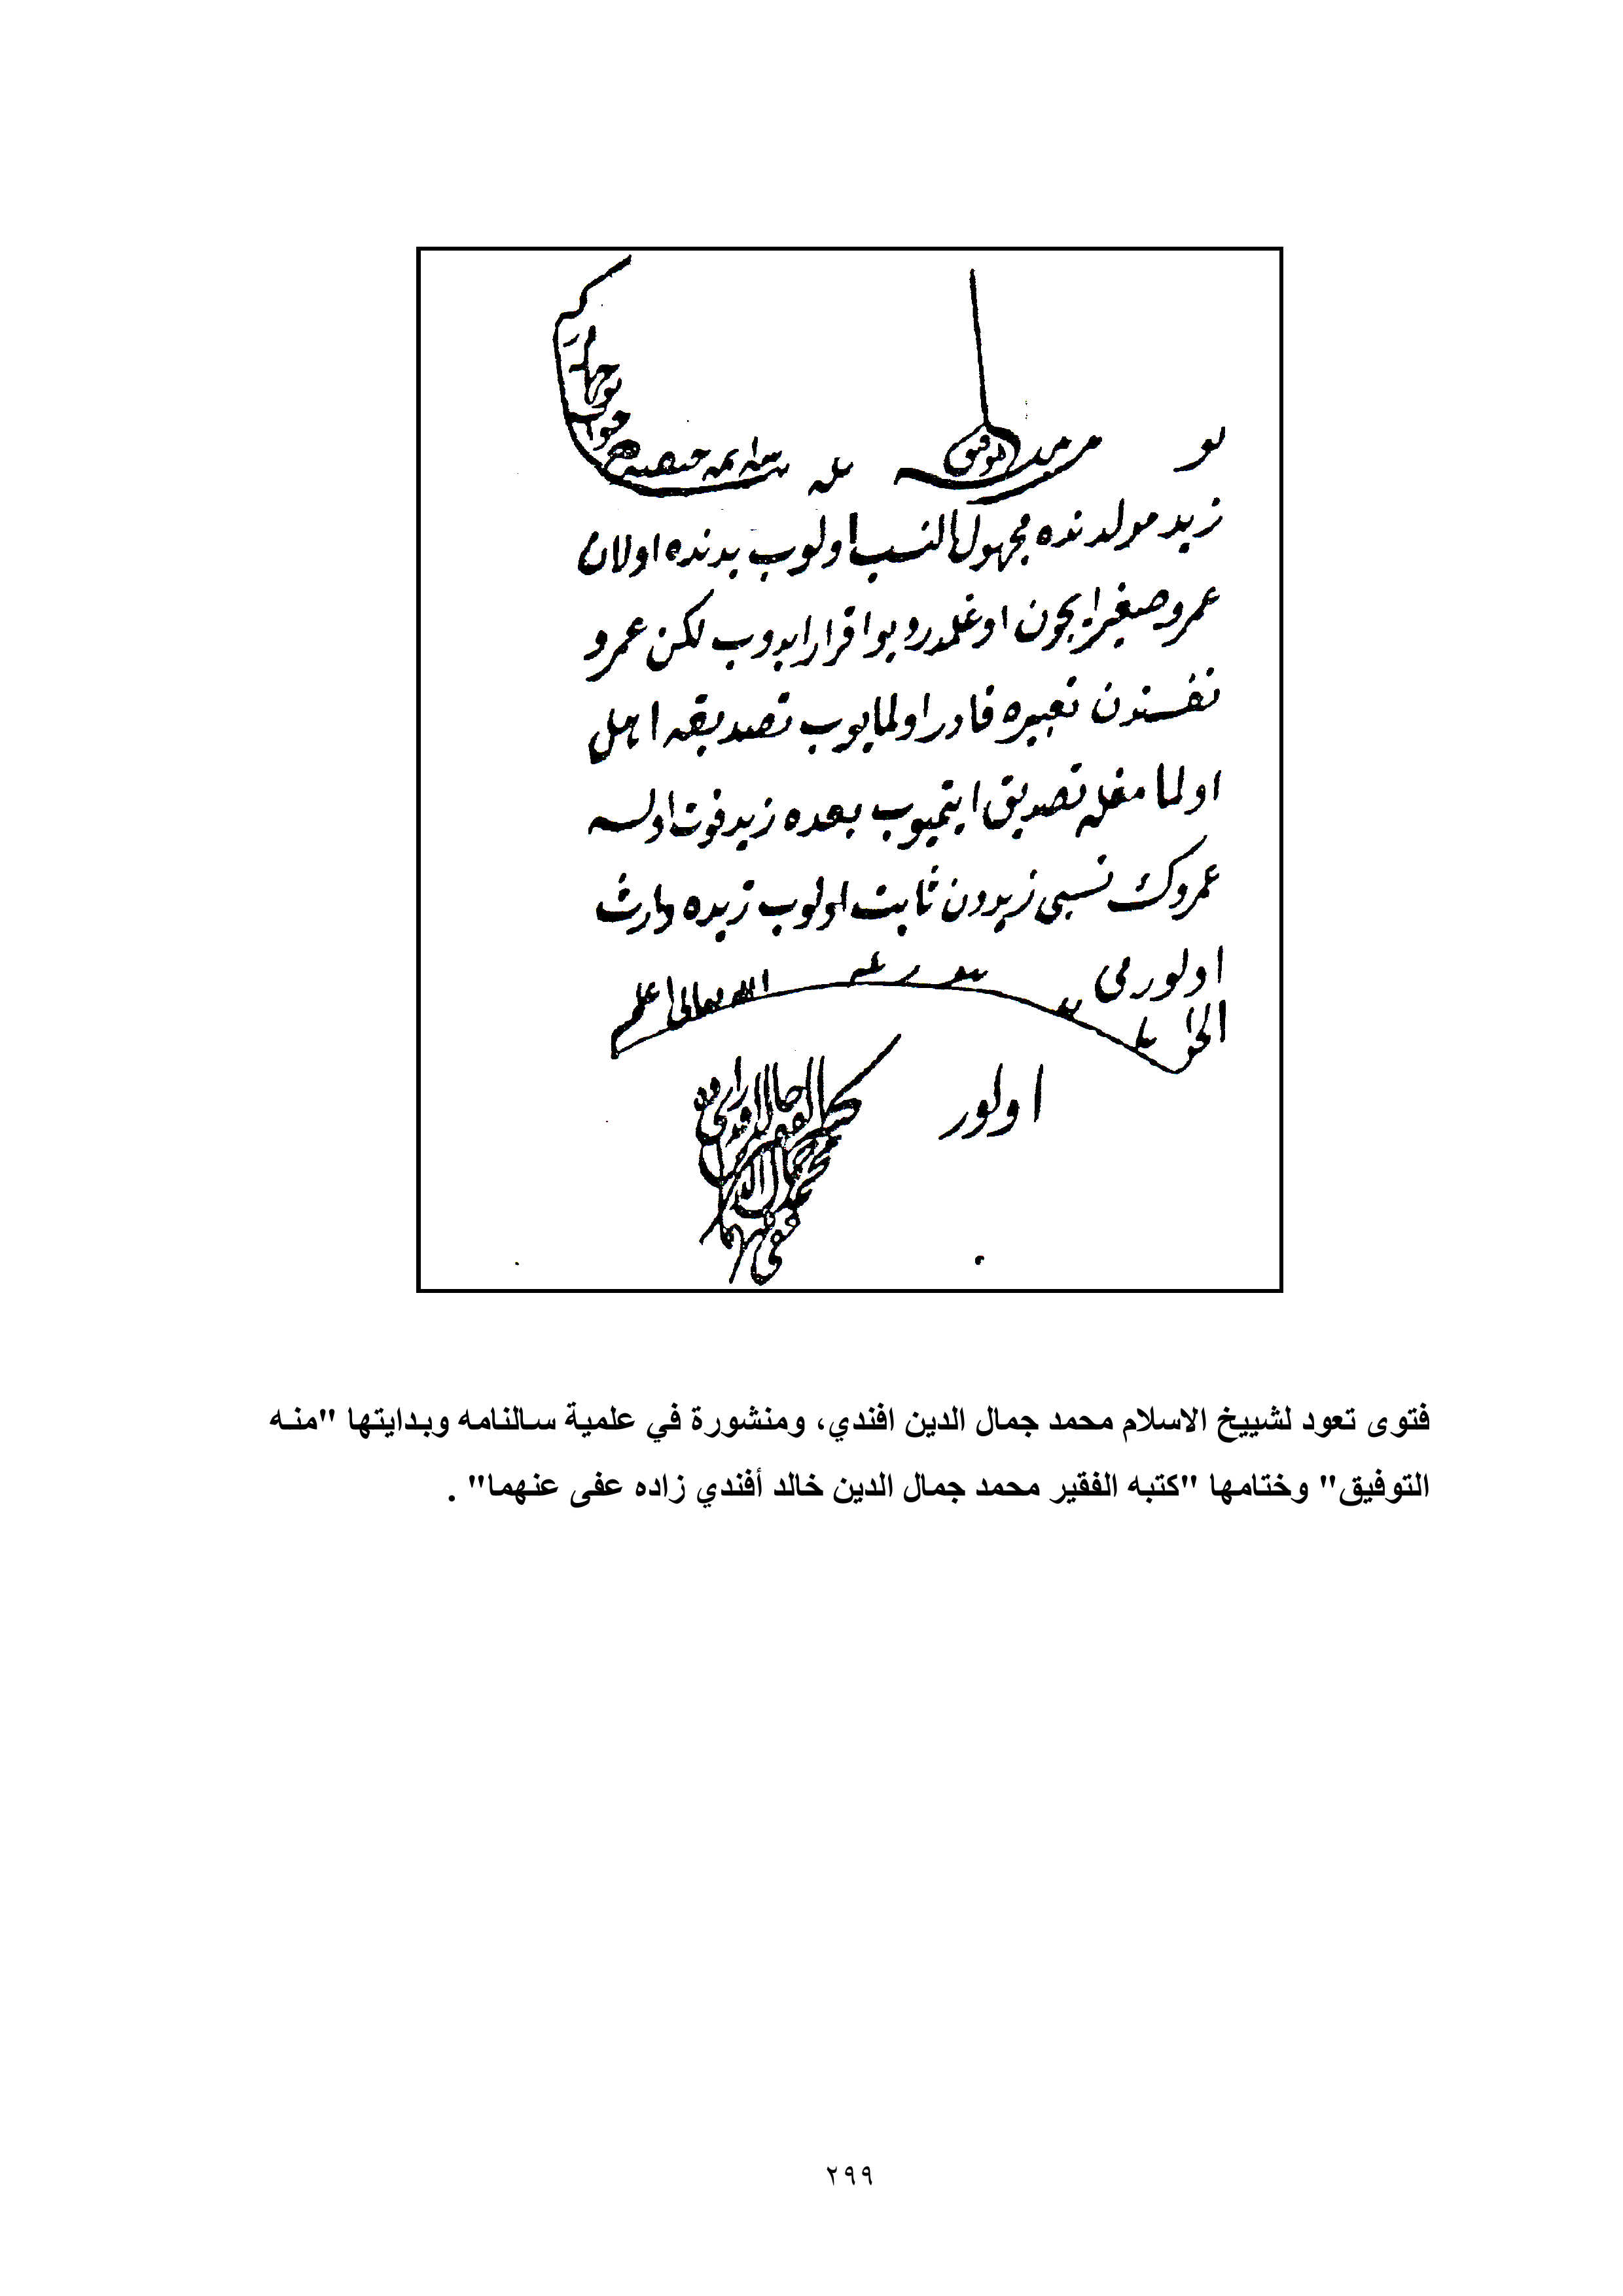 بو مسئله بیاننده ائمهٔ حنفیه‌دن جواب نوجهله در که
منه التوفيق
زید مولدنده مجهول النسب اولوب یدنده اولان
عمرو صغیر ایچون اوغلمدر دیو اقرار ایدوب لکن عمرو
نفسندن تعبیره قادر اولمایوب تصدیقه اهل
اولمامغله تصدیق ایتمیوب بعده زید فوت اولسه
عمروك نسبی زیددن ثابت اولوب زیده وارث
اولورمی
الجواب الله تعالى اعلم
اولور
كتبه الفقير محمد جمال الدين خالد افندي زاده عفى عنهما
فتوى تعود لشييخ الاسلام محمد جمال الدين افندي، ومنشورة في علمية سالنامه وبدايتها "منه
التوفيق" وختامها "كتبه الفقير محمد جمال الدين خالد أفندي زاده عفى عنهما" .
٢٩٩